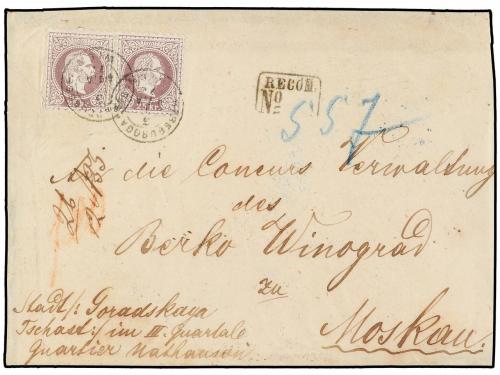 RECOM.
No
557
An die Concurs Verwaltung
des
Berko Winograd
zu
Moskau.
Stadt/: Goradskaya
Tschast:/ im III. Quartale
Quartier Nathanson.